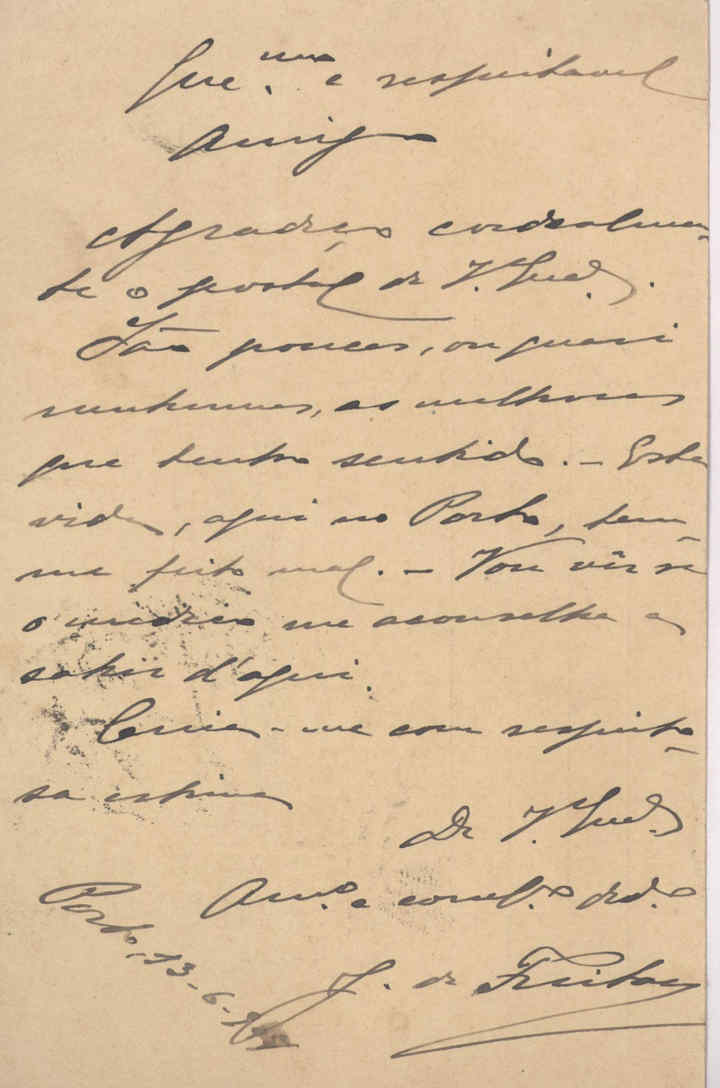 e respeitavel
Amigo
Agradeço cordealmen-
te o postal de V.
São poucas, ou quasi
nenhumas, as melhoras
que tenho sentido. – Esta
vida, aqui no Porto, tem-
me feito mal. – Vou vêr se
o medico me aconselha a
sahir d'aqui.
Creia-me com respeito-
sa estima
De V.
Am.º e
J. de Freitas
Porto, 13-6-